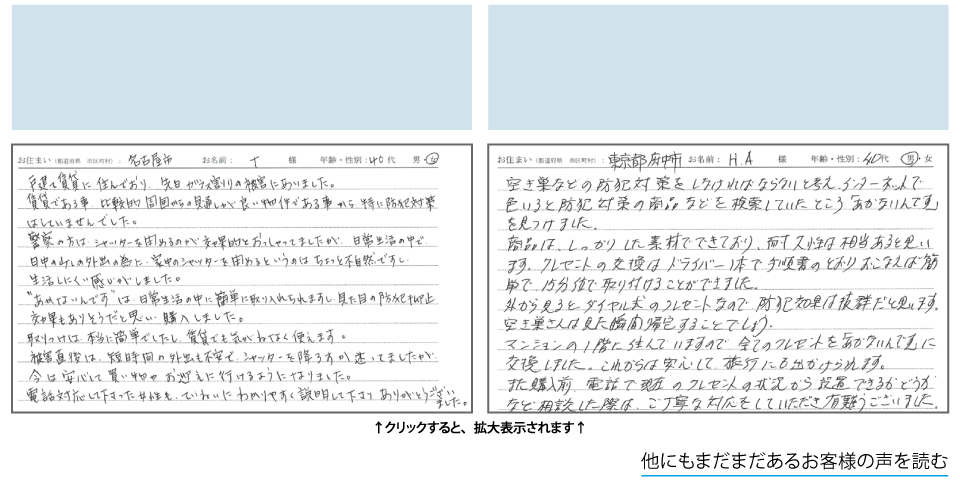 お住まい(都道府県 市区町村): 名古屋市 お名前: T 様 年齢・性別: 40代 男・女
戸建て賃貸に住んでおり、先日ガラス割りの被害にありました。
賃貸である事、比較的周囲からの見通しが良い物件である事から特に防犯対策
はしていませんでした。
警察の方は、シャッターを閉めるのが効果的とおっしゃってましたが、日常生活の中で、
日中の少しの外出の為に、家中のシャッターを閉めるというのはちょっと不自然ですし、
生活しにくい感じがしました。
"あかないんです"は、日常生活の中に簡単に取り入れられますし、見た目の防犯抑止
効果もありそうだと思い購入しました。
取りつけは、本当に簡単でしたし、賃貸でも気がねなく使えます。
被害直後は、短時間の外出も不安で、シャッターを降ろすか迷ってましたが、
今は安心して買い物やお迎えに行けるようになりました。
電話対応して下さった女性も、ていねいにわかりやすく説明して下さりありがとうございました。
お住まい(都道府県 市区町村): 東京都府中市 お名前: H.A 様 年齢・性別: 40代 男・女
空き巣などの防犯対策をしなければならないと考え、インターネットで
色いろと防犯対策の商品などを検索していたところ「あかないんです」
を見つけました。
商品は、しっかりした素材でできており、耐久性は相当あると思い
ます。クレセントの交換はドライバー1本で手順書のとおりおこなえば簡
単で、15分位で取り付けることができました。
外から見るとダイヤル式のクレセントなので、防犯効果は抜群だと思います。
空き巣さんは見た瞬間帰宅することでしょう。
マンションの1階に住んでいますので全てのクレセントを「あかないんです」に
交換しました。これからは安心して旅行にも出かけられます。
また購入前、電話で現在のクレセントの状況から設置できるかどうか
など相談した際は、ご丁寧な対応をしていただき有難うございました。
↑クリックすると、拡大表示されます↑
他にもまだまだあるお客様の声を読む